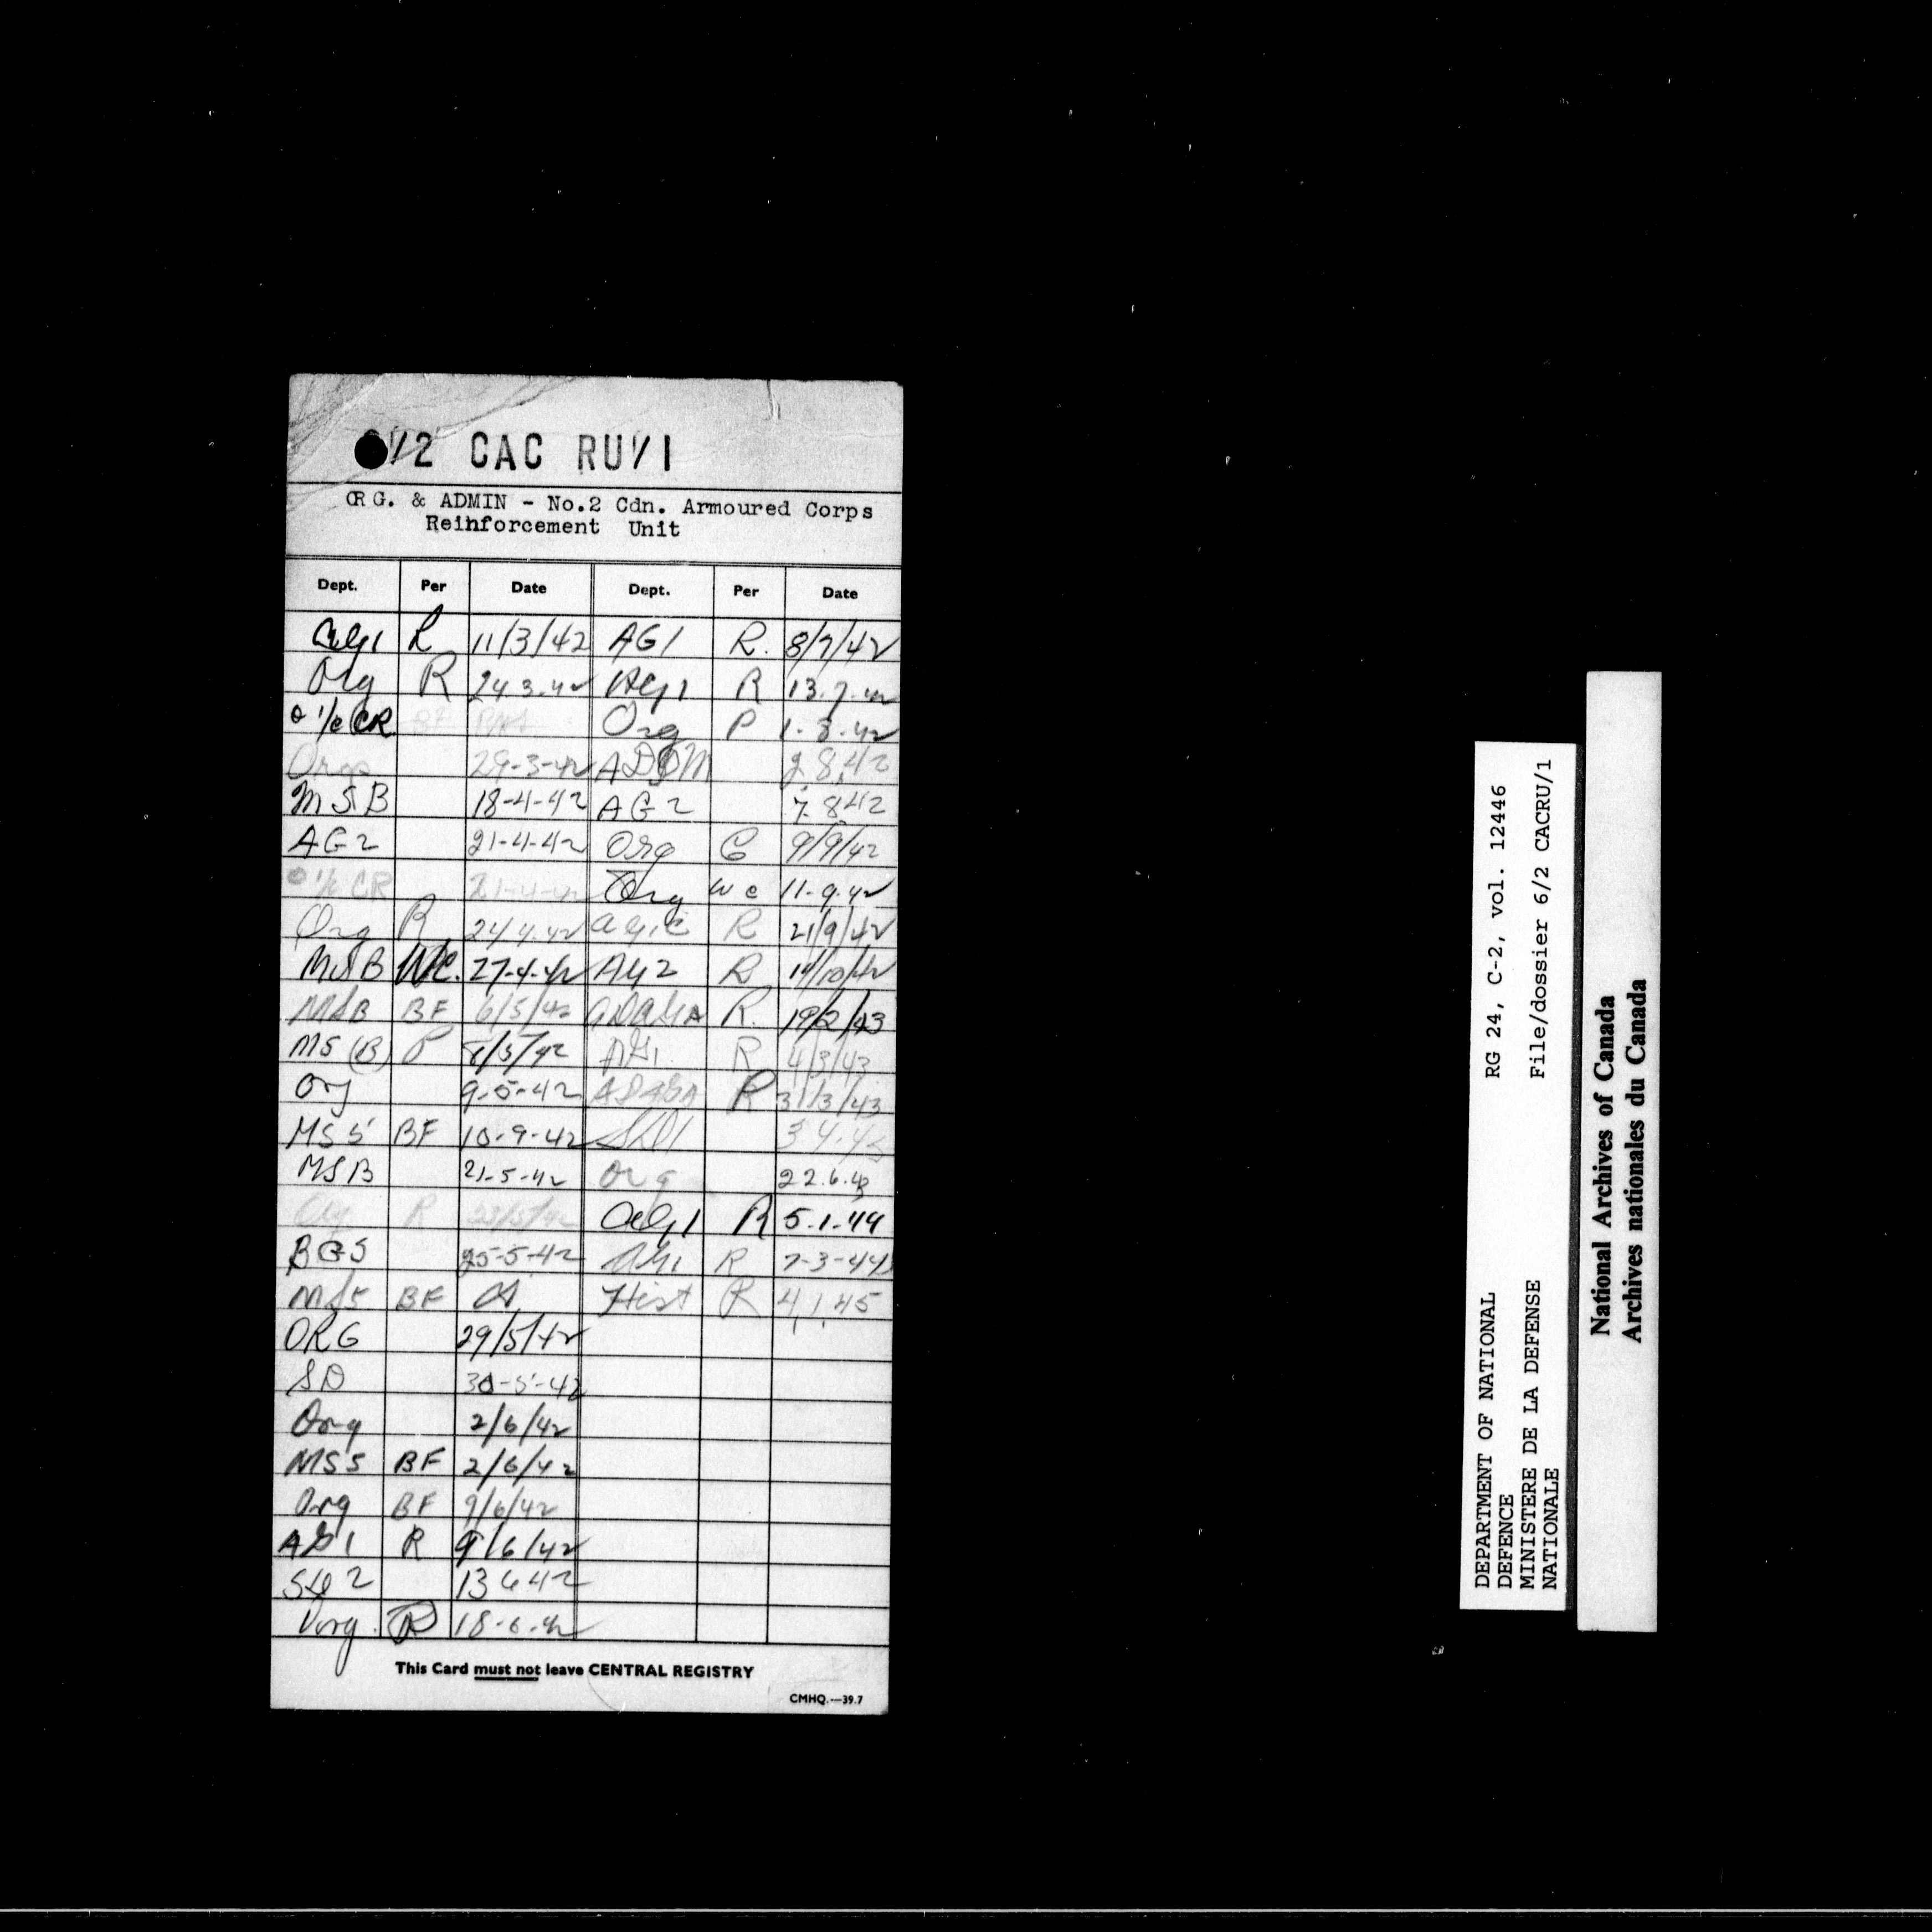 6/2 CAC RU/1
ORG. & ADMIN - No.2 Cdn. Armoured Corps
Reinforcement Unit
Dept. Per Date Dept. Per Date
AG1 R 11/3/42 AG1 R. 8/7/42
Org R 24.3.42 AG1 R 13.7.42
O i/c CR Org P 1-8-42
Org 29-3-42 ADOM 2.8.42
MSB 18-4-42 AG2 7.8.42
AG2 21-4-42 Org G 9/9/42
O i/c CR 21-4-42 Org WC 11-9-42
Org R 24/4.42 AG1C R 21/9/42
MSB WC. 27-4-42 AG2 R /10/42
MSB BF 6/5/42 R. 19/2/43
MS(B) P 8/5/42 AG1. R 4/3/43
Org 9-5-42 R 31/3/43
MS5 BF 10-9-42 SD1 3 4.43
MSB 21-5-42 Org 22.6.43
Org R 23/5/42 AG1 R 5.1.44
BGS 25-5-42 AG1 R 7-3-44
MS5 BF Hist R 4,1,45
ORG 29/5/42
SD 30-5-42
Org 2/6/42
MS5 BF 2/6/42
Org BF 9/6/42
AG1 R 9/6/42
SD2 13 6 42
Org. R 18-6-42
This Card must not leave CENTRAL REGISTRY
CMHQ.—39.7
DEPARTMENT OF NATIONAL RG 24, C-2, vol. 12446
DEFENCE File/dossier 6/2 CACRU/1
MINISTERE DE LA DEFENSE
NATIONALE
National Archives of Canada
Archives nationales du Canada